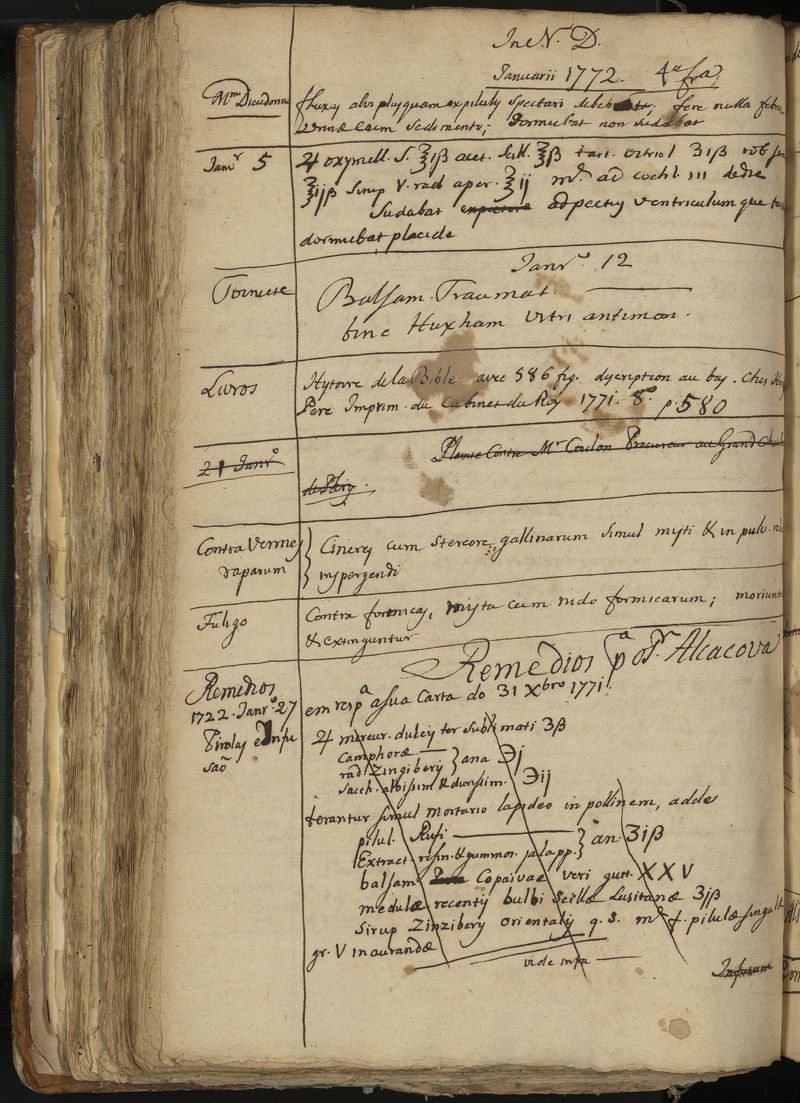 In N. D.
Ianuarii 1772. 4ta fra
Mme Dieudonné
fluxus albus plusquam spectari debebat; fere nulla febris
Urinæ cum sedimento; dormiebat non sudabat
Ianr. 5
♃ oxymell. S. ℥iß acet. Scill. ℥ß tart. vitriol ʒiß rob
℥ijß Sirup V. rad aper. ℥ij m. ad cochl. III dedie
Sudabat expectore ad pectus ventriculumque
dormiebat placide
Ianr. 12
Balsam. Traumat.
bine Huxham Vitri antimon.
Livros
Hystoire de la Bible avec 586 fig. dyscription au bas. Ches
Pere Imprim. du Cabinet du Roy 1771. 8o p. 580
21 Janro
Plainte Contra Mr Coulon Procureur au Grand
de Paris.
Contra Vermes
raparum
Cineres cum Stercore gallinarum simul mysti & in pulv.
inspergendi
Fuligo
Contra formicas, mysta cum nido formicarum;
& extinguntur
Remedios pa o Sr Alcacova
Remedios
1722. Janro 27
Pirolas e Infu
são
em respa asua Carta do 31 Xbro 1771.
♃ mercur. dulcis ter sublimati ʒß
Camphoræ
rad Zingiberis } ana ℈j
Sacch. albissim & durissim. ℈ij
terantur simul mortario lapideo in pollinem, adde
pilul. Rufi
Extract resin. & gummos. jalapp. } an. ʒiß
balsam Copaivae veri gutt. XXV
medulæ recentis bulbi Scillæ Lusitanæ ʒjß
Sirup Zinziberis orientalis q. S. m. f. pilulæ singulæ
gr. V inaurandæ
vide infra
Infusum